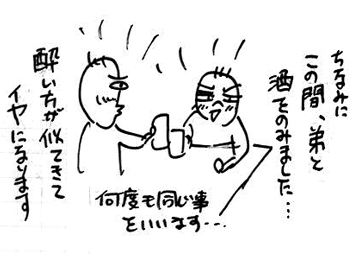 ちなみに
この間、弟と
酒をのみました…
何度も同じ事
をいいます…
酔い方が似てきて
イヤになります